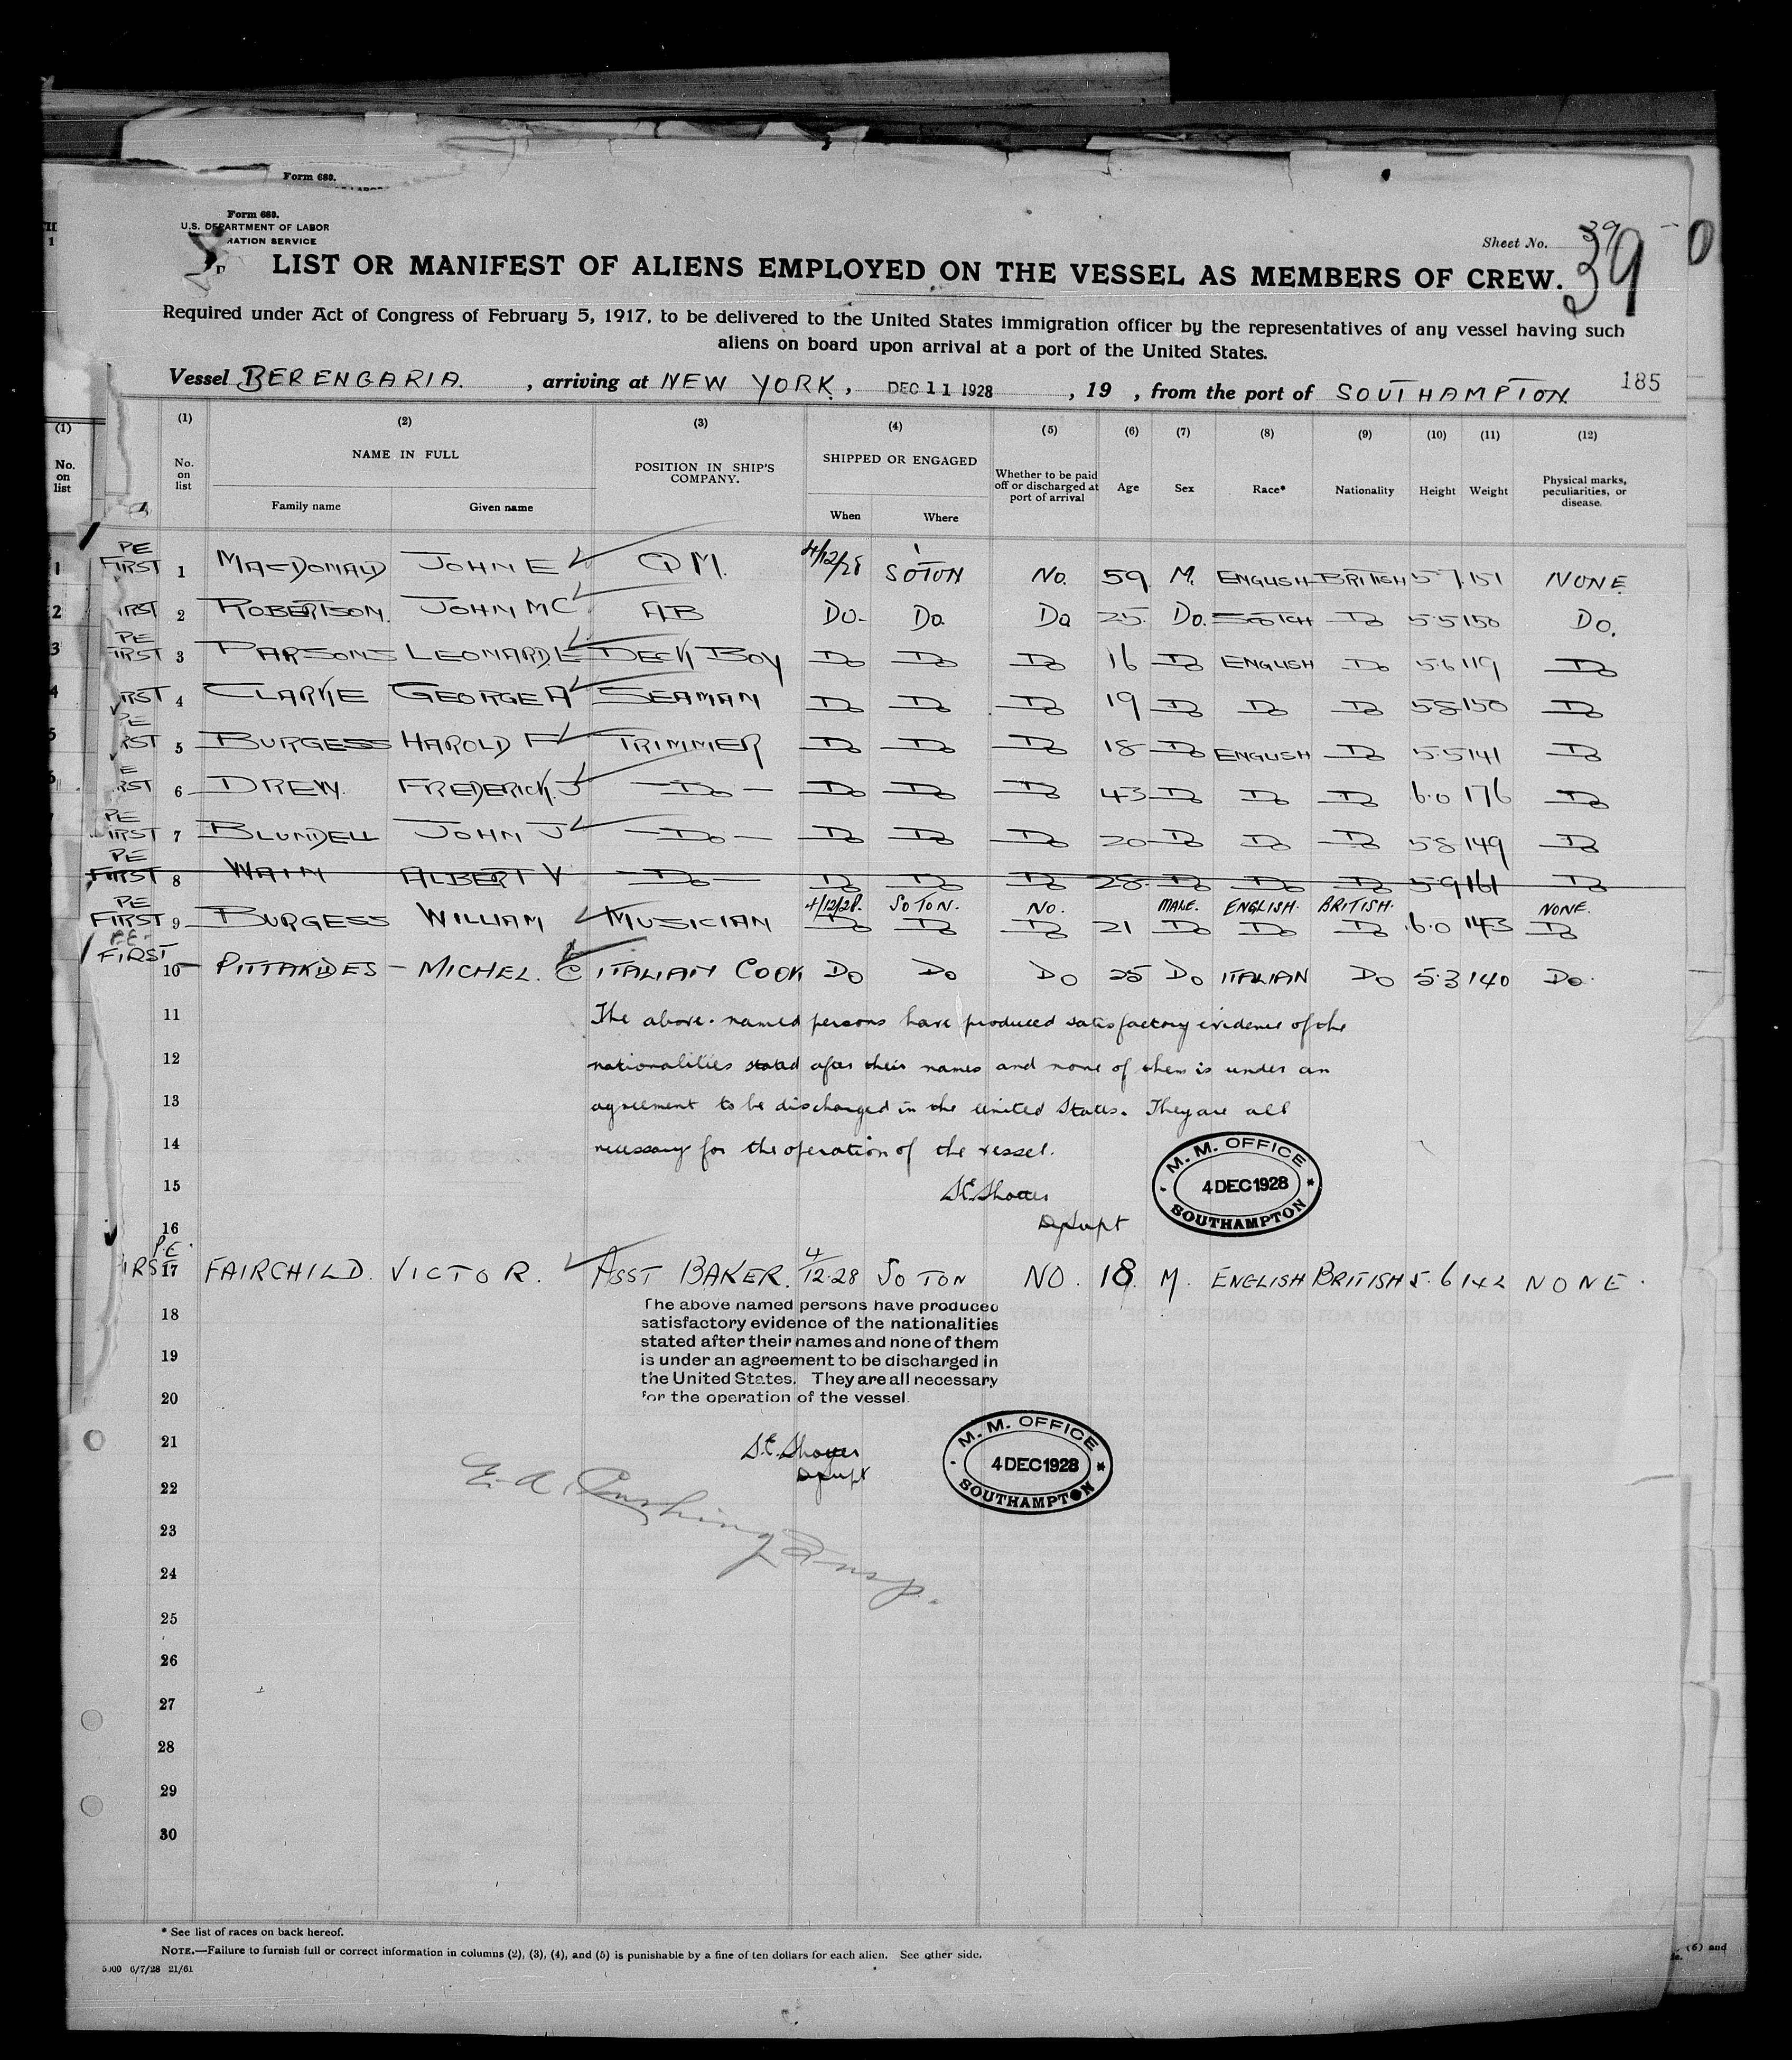 Form 689.
Form 689.
U.S. DEPARTMENT OF LABOR
RATION SERVICE
Sheet No. 39
39
0
LIST OR MANIFEST OF ALIENS EMPLOYED ON THE VESSEL AS MEMBERS OF CREW.
Required under Act of Congress of February 5, 1917, to be delivered to the United States immigration officer by the representatives of any vessel having such
aliens on board upon arrival at a port of the United States.
Vessel BERENGARIA , arriving at NEW YORK, DEC 11 1928 , 19 , from the port of SOUTHAMPTON 185
(1) (1) (2) (3) (4) (5) (6) (7) (8) (9) (10) (11) (12)
No. on list No. on list NAME IN FULL POSITION IN SHIP'S COMPANY. SHIPPED OR ENGAGED Whether to be paid off or discharged at port of arrival Age Sex Race* Nationality Height Weight Physical marks, peculiarities, or disease.
Family name Given name When Where
PE
FIRST 1 MACDONALD JOHN E QM. 4/12/28 SOTON No. 59 M. ENGLISH BRITISH 5-7 151 NONE.
IRST 2 ROBERTSON. JOHN MC AB Do. Do. Do 25 Do. SCOTCH Do 5.5 150 Do.
PE
FIRST 3 PARSONS LEONARD E DECK BOY Do Do Do 16 Do ENGLISH Do 5.6 119 Do
IRST 4 CLARKE GEORGE A SEAMAN Do Do Do 19 Do Do Do 5.8 150 Do
PE
RST 5 BURGESS HAROLD F TRIMMER Do Do Do 18 Do ENGLISH Do 5.5 141 Do
E
RST 6 DREW. FREDERICK J Do Do Do Do 43 Do Do Do 6.0 176 Do
PE
FIRST 7 BLUNDELL JOHN J Do Do Do Do 20 Do Do Do 5.8 149 Do
PE
FIRST 8 WAIN ALBERT V Do Do Do Do 28 Do Do Do 5.9 161 Do
PE 4/12/28. SOTON. NO. MALE. ENGLISH. BRITISH. NONE.
FIRST 9 BURGESS WILLIAM MUSICIAN Do Do Do 21 Do Do Do 6.0 143 Do
PE
FIRST 10 PITTAKIDES MICHEL. C ITALIAN COOK Do Do Do 25 Do ITALIAN Do 5.3 140 Do.
11 The above-named persons have produced satisfactory evidence of the
12 nationalities stated after their names and none of them is under an
13 agreement to be discharged in the United States. They are all
14 necessary for the operation of the vessel.
M. M. OFFICE
4 DEC 1928
SOUTHAMPTON
15
DpSupt
16
P.E.
IRST 17 FAIRCHILD. VICTOR. ASST BAKER. 4/12.28 SOTON NO. 18. M. ENGLISH BRITISH 5.6 142 NONE.
18 The above named persons have produced
satisfactory evidence of the nationalities
stated after their names and none of them
19 is under an agreement to be discharged in
the United States. They are all necessary
20 for the operation of the vessel.
M. M. OFFICE
4 DEC 1928
SOUTHAMPTON
21
DpSupt
22 E. A. Cushing Insp.
23
24
25
26
27
28
29
30
* See list of races on back hereof.
NOTE.—Failure to furnish full or correct information in columns (2), (3), (4), and (5) is punishable by a fine of ten dollars for each alien. See other side.
(6) and
5000 6/7/28 21/61